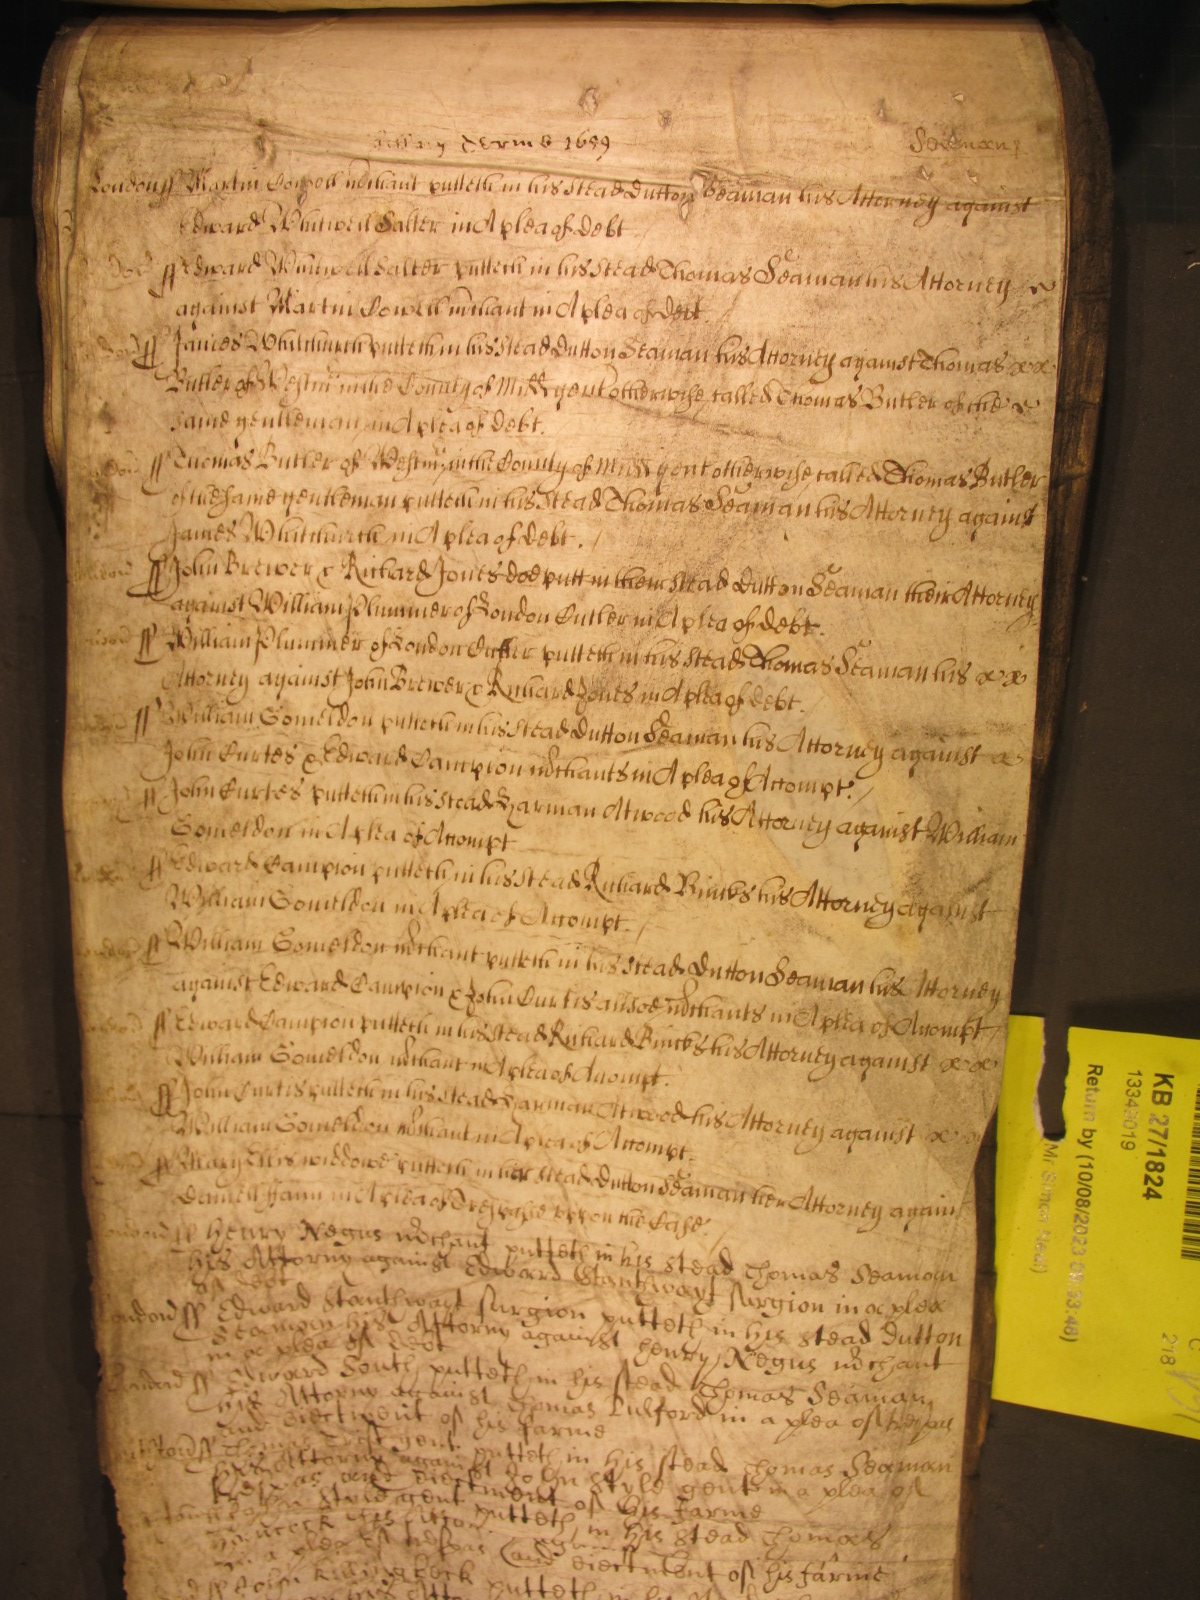 Hillary Terme 1659
Seaman
London ss Martin Cowell mrchant putteth in his stead Dutton Seaman his Attorney against
Edward Whitwell Salter in A plea of debt
ss Edward Whitwell Salter putteth in his stead Thomas Seaman his Attorney
against Martin Cowell mrchant in A plea of debt.
ss James Whitchurch putteth in his stead Dutton Seaman his Attorney against Thomas
Butler of Westmr in the County of Midd gent otherwise called Thomas Butler of the
same gentleman in A plea of debt.
ss Thomas Butler of Westmr in the County of Midd gent otherwise called Thomas Butler
of the same gentleman putteth in his stead Thomas Seaman his Attorney against
James Whitchurch in A plea of debt.
ss John Brewer & Richard Jones doe putt in their stead Dutton Seaman their Attorney
against William Plummer of London Cutler in A plea of debt.
ss William Plummer of London Cutler putteth in his stead Thomas Seaman his
Attorney against John Brewer & Richard Jones in A plea of debt.
ss William Someldon putteth in his stead Dutton Seaman his Attorney against
John Curtes & Edward Campion mrchants in A plea of Accompt.
ss John Curtes putteth in his stead Harman Atwood his Attorney against William
Someldon in A plea of Accompt
ss Edward Campion putteth in his stead Richard Bincks his Attorney against
William Someldon in A plea of Accompt.
ss William Someldon mrchant putteth in his stead Dutton Seaman his Attorney
against Edward Campion & John Curtis allsoe mrchants in A plea of Accompt
ss Edward Campion putteth in his stead Richard Bincks his Attorney against
William Someldon mrchant in A plea of Accompt.
ss John Curtis putteth in his stead Harman Atwood his Attorney against
William Someldon mrchant in A plea of Accompt.
ss Mary Ellis widdowe putteth in her stead Dutton Seaman her Attorney against
Daniell in A plea of Trespasse vpon the Case.
London ss Henry Negus mrchant putteth in his stead Thomas Seaman
his Attorny against Edward Stanthwayt surgion in a plea
of debt
London ss Edward Stanthwayt surgion putteth in his stead Dutton
Seaman his Attorny against Henry Negus mrchant
in a plea of debt
ss Edward South putteth in his stead Thomas Seaman
his Attorny against Thomas Pulford in a plea of trespas
and eiectment of his farme
ss Thomas gent putteth in his stead Thomas Seaman
his Attorny against John Style gent in a plea of
trespas and eiectment of his farme
John Style gent putteth in his stead Thomas
his Attorny
in a plea of trespas and eiectment of his farme
ss John putteth in
KB 27/1824
13345019
Return by (10/08/2023 08:33:46)
218